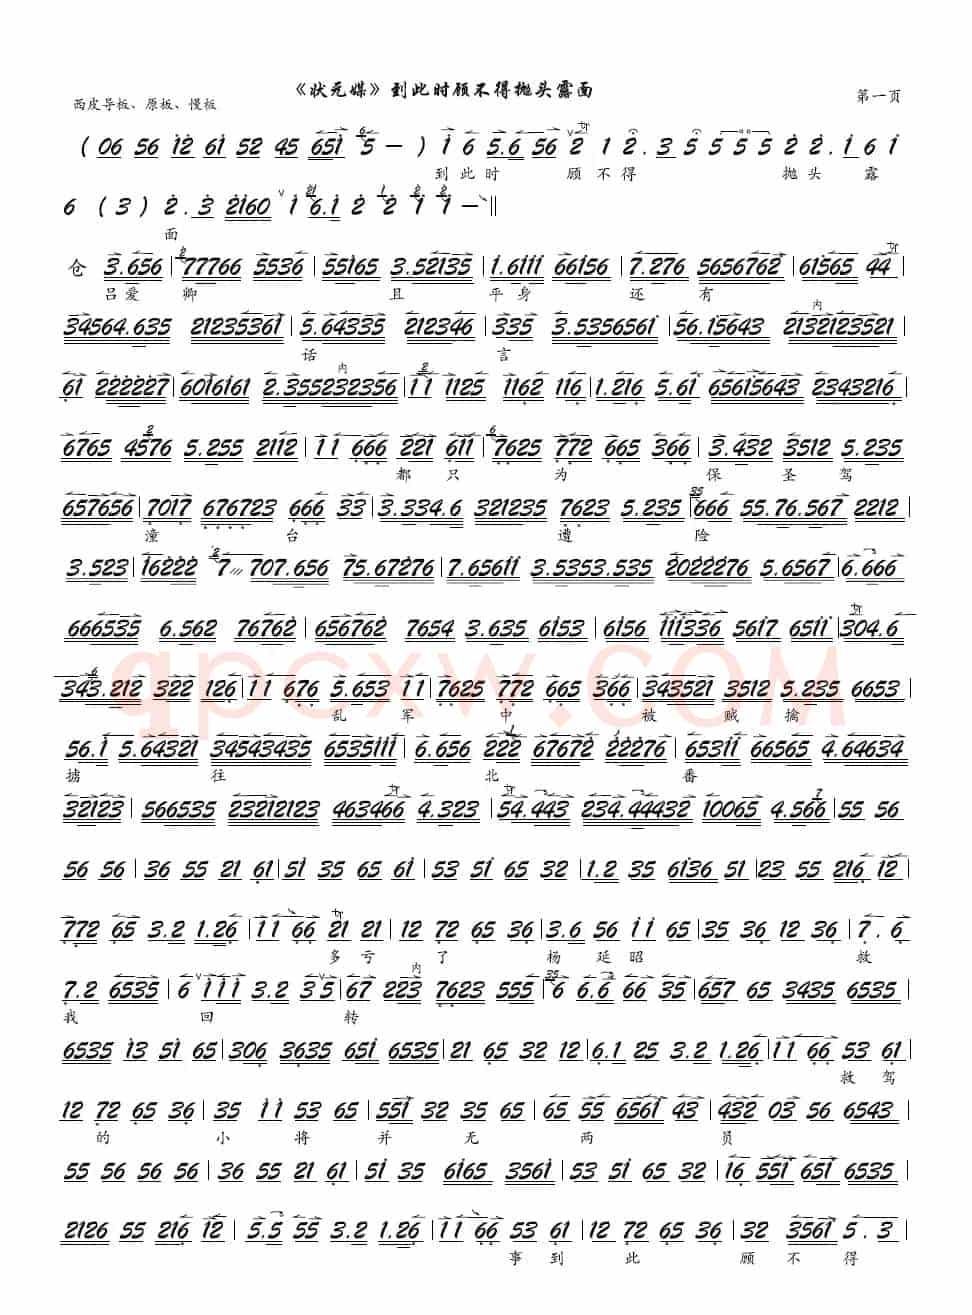 《状元媒》到此时顾不得抛头露面
西皮导板、原板、慢板
第一页
( 06 56 12 61 52 45 651 5 — ) 1 6 5.6 56 2 1 2.3 5 5 5 5 2 2.1 6 1
到此时 顾不得 抛头露
6 ( 3 ) 2.3 2160 1 6.1 2 2 1 1 —‖
面
仓 3.656 | 77766 5536 | 55165 3.52135 | 1.6111 66156 | 7.276 5656762 | 61565 44 |
吕爱卿 且 平身 还有
34564.635 21235361 | 5.64335 212346 | 335 3.5356561 | 56.15643 2132123521 |
话 言 内
61 222227 | 6016161 2.355232356 | 11 1125 1162 116 | 1.216 5.61 65615643 2343216 |
内
6765 4576 5.255 2112 | 11 666 221 611 | 7625 772 665 366 | 3.432 3512 5.235
都只 为 保圣驾
657656 | 7017 676723 666 33 | 3.334.6 321235 7623 5.235 | 666 55.76.567 2212
潼 台 遭 险
3.523 | 16222 7 707.656 75.67276 | 7.65611 3.5353.535 2022276 5.6567 | 6.666
666535 6.562 76762 | 656762 7654 3.635 6153 | 6156 111336 5617 6511 | 304.6
343.212 322 126 | 11 676 5.653 11 | 7625 772 665 366 | 343521 3512 5.235 6653
乱 军 中 被贼擒
56.1 5.64321 34543435 6535111 | 6.656 222 67672 22276 | 65311 66565 4.64634
掳 往 北 番
32123 | 566535 23212123 463466 4.323 | 54.443 234.44432 10065 4.566 | 55 56
56 56 | 36 55 21 61 | 51 35 65 61 | 53 51 65 32 | 1.2 35 6136 51 | 23 55 216 12 |
772 65 3.2 1.26 | 11 66 21 21 | 12 72 65 36 | 3.6 56 11 65 | 35 36 12 36 | 7.6
多亏 了 杨延昭 救
7.2 6535 | 6 111 3.2 35 | 67 223 7623 555 | 6 6.6 66 35 | 657 65 3435 6535 |
我 回 转 内
6535 13 51 65 | 306 3635 651 6535 | 21 65 32 12 | 6.1 25 3.2 1.26 | 11 66 53 61 |
救驾
12 72 65 36 | 35 11 53 65 | 551 32 35 65 | 65 55 6561 43 | 432 03 56 6543 |
的 小 将 并 无 两 员
55 56 56 56 | 36 55 21 61 | 51 35 6165 3561 | 53 51 65 32 | 16 551 651 6535 |
2126 55 216 12 | 5.5 55 3.2 1.26 | 11 66 53 61 | 12 72 65 36 | 32 3561 5.3 |
事到 此 顾不得
qpcxw.com